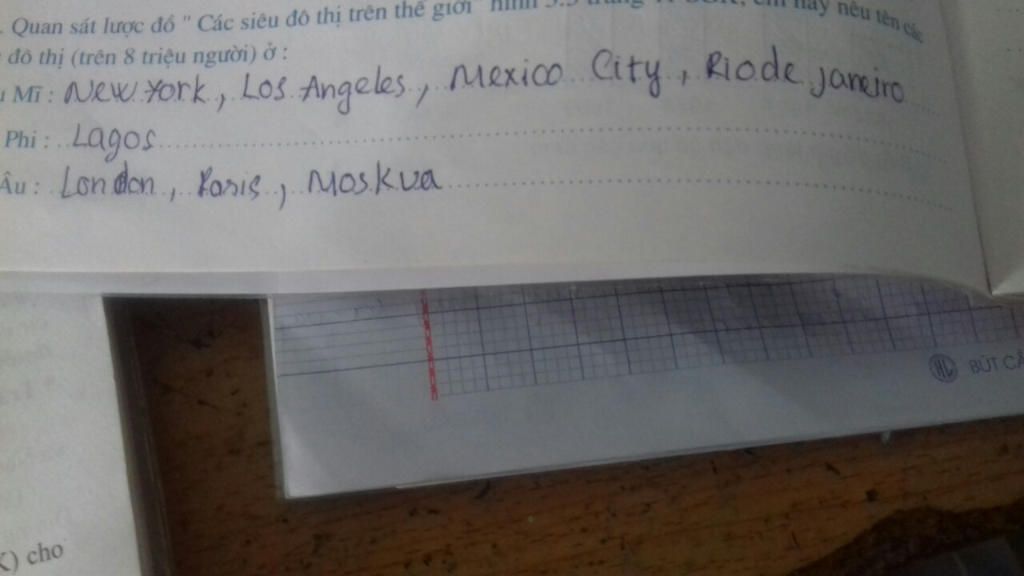 . Quan sát lược đồ " Các siêu đô thị trên thế giới" hình nêu tên các
đô thị (trên 8 triệu người) ở :
Mĩ : New York, Los Angeles, Mexico City, Rio de janeiro
Phi : Lagos
Âu : London, Paris, Moskva
BÚT
) cho